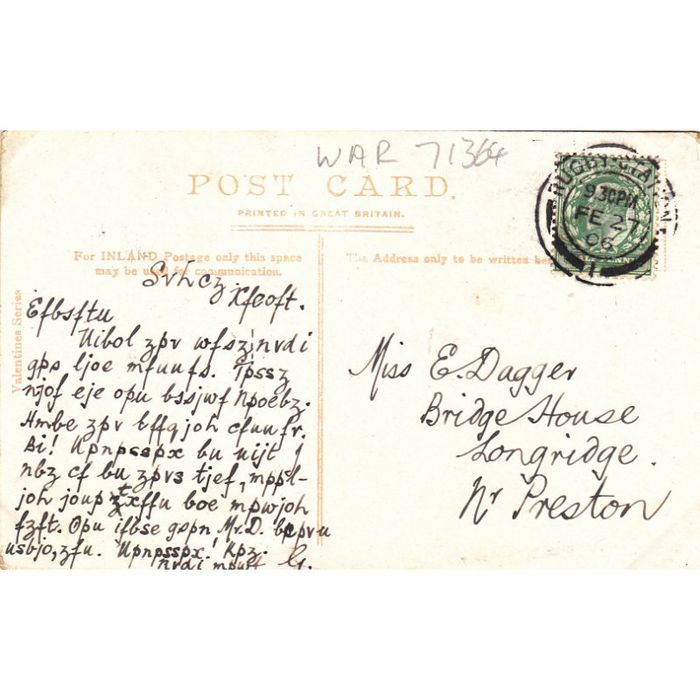 WAR 71364
POST CARD.
PRINTED IN GREAT BRITAIN.
For INLAND Postage only this space
may be used for communication.
The Address only to be written
Valentines Series
RUGBY STATION
9 30PM
FE 27
06
Svhcz
Xfeoft.
Efbsftu
Uibol zpv wfsz nvdi
gps ljoe mfuufs. Tpssz
njof eje opu bssjwf Npoebz.
Hmbe zpv lffqjoh cfuufs.
Bi! Upnpsspx bu uijt J
nbz cf bu zpvs tjef, mppl-
joh joup xffu boe mpwjoh
fzft. Opu ifbse gspn Mr. D. bcpvu
usbjo, zfu. Upnpsspx! Kpz.
nvdi mpwf G.
Miss E. Dagger
Bridge House
Longridge.
Nr Preston